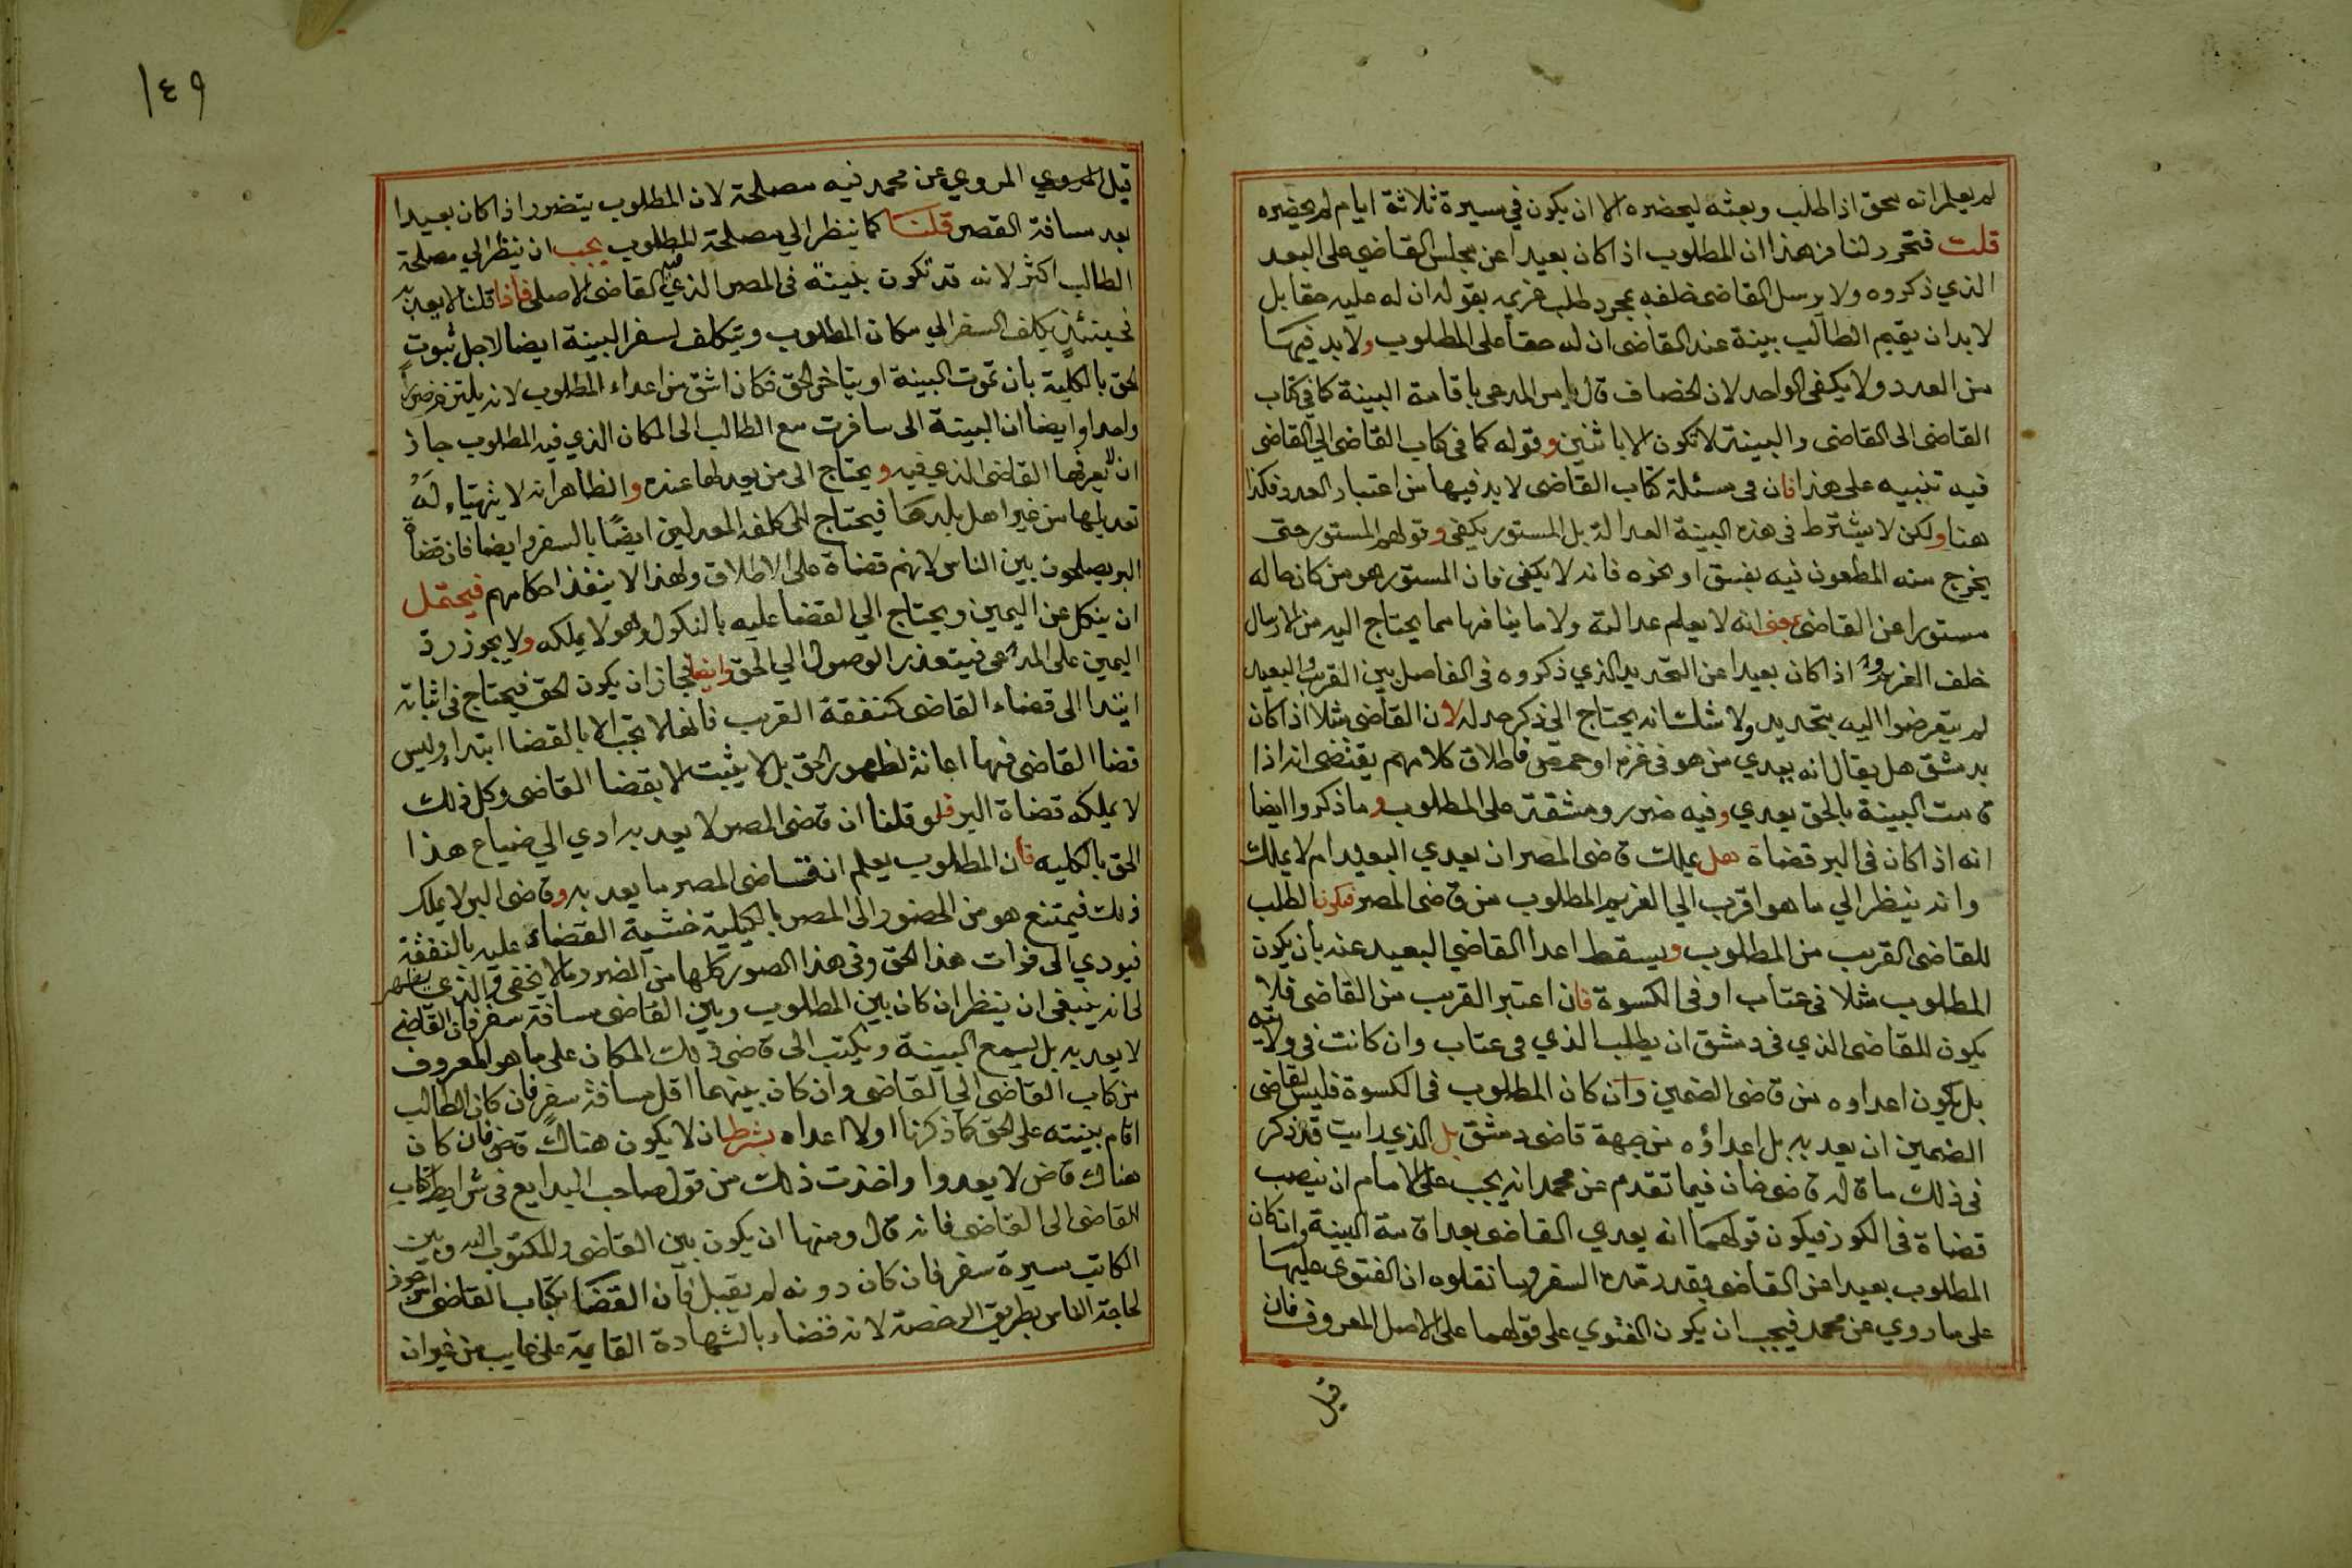 لم يعلم انه محق اذا طلب وبعثه ليحضره الا ان يكون في مسيرة ثلاثة ايام لم يحضره
قلت فتحرر لنا من هذا ان المطلوب اذا كان بعيدا عن مجلس القاضي على البعد
الذي ذكروه ولا يرسل القاضي خلفه بمجرد طلب غريمه بقوله ان له عليه حقا بل
لا بد ان يقيم الطالب بينة عند القاضي ان له حقا على المطلوب ولا بد فيها
من العدد ولا يكفي الواحد لان الخصاف قال يامر المدعي باقامة البينة كما في كتاب
القاضي الى القاضي والبينة لا تكون الا باثنين وقوله كما في كتاب القاضي الى القاضي
فيه تنبيه على هذا فان في مسئلة كتاب القاضي لا بد فيها من اعتبار العدد فكذا
هنا ولكن لا يشترط في هذه البينة العدالة بل المستور يكفي وقولهم المستور حتى
يخرج منه المطعون فيه بفسق او نحوه فانه لا يكفي فان المستور هو من كان حاله
مستورا عن القاضي يعني انه لا يعلم عدالته ولا ما ينافيها مما يحتاج اليه من الارسال
خلف الغريم اذا كان بعيدا عن التحديد الذي ذكروه في الفاصل بين القريب والبعيد
لم يتعرضوا اليه بتحديد ولا شك انه يحتاج الى ذكر حد له لان القاضي مثلا اذا كان
بدمشق هل يقال انه يعدي من هو في غزة او حمص فاطلاق كلامهم يقتضي انه اذا
قامت البينة بالحق يعدي وفيه ضرر ومشقة على المطلوب وما ذكروا ايضا
انه اذا كان في البر قضاة هل يملك قاضي المصر ان يعدي البعيد ام لا يملك
وانه ينظر الي ما هو اقرب الي الغريم المطلوب من قاضي المصر فيكون الطلب
للقاضي القريب من المطلوب ويسقط اعدا القاضي البعيد عنه بان يكون
المطلوب مثلا في عتاب او في الكسوة فان اعتبر القريب من القاضي فلا
يكون للقاضي الذي في دمشق ان يطلب الذي في عتاب وان كانت في ولايته
بل يكون اعداوه من قاضي الضمين وان كان المطلوب في الكسوة فليس لقاضي
الضمين ان يعديه بل اعداؤه من جهة قاضي دمشق بل الذي رايت قد ذكر
في ذلك ما قاله قاضي خان فيما تقدم عن محمد انه يجب على الامام ان ينصب
قضاة في الكور فيكون قولهما انه يعدي القاضي بعد اقامة البينة وان كان
المطلوب بعيدا عن القاضي بقدر مدة السفر وما نقلوه ان الفتوى عليها
على ما روي عن محمد فيجب ان يكون الفتوي على قولهما على الاصل المعروف فان
قيل
١٤٩
قيل المروي المروي عن محمد فيه مصلحة لان المطلوب يتضرر اذا كان بعيدا
بعد مسافة القصر قلنا كما ينظر الي مصلحة المطلوب يجب ان ينظر الي مصلحة
الطالب اكثر لانه قد تكون بينته في المصر الذي فيه القاضي الاصلي فاذا قلنا لا يعديه
فحينئذ يكلف السفر الي مكان المطلوب ويتكلف لسفر البينة ايضا لاجل ثبوت
الحق بالكلية بان تموت البينة او يتاخر الحق فكان اشق من اعداء المطلوب لانه يلتزم ضررا
واحدا وايضا ان البينة الى سافرت مع الطالب الى المكان الذي فيه المطلوب جاز
ان لا يعرفها القاضي الذي فيه ويحتاج الى من يعدلها عنده والظاهر انه لا يتهياء له
تعديلها من غير اهل بلدها فيحتاج الى كلفة المعدلين ايضا بالسفر وايضا فان قضاة
البر يصلحون بين الناس لانهم قضاة على الاطلاق ولهذا لا ينفذ احكامهم فيحتمل
ان ينكل عن اليمين ويحتاج الي القضا عليه بالنكول وهو لا يملكه ولا يجوز رد
اليمين على المدعي فيتعذر الوصول الي الحق وايضا جاز ان يكون الحق فيحتاج في اثباته
ابتدا الى قضاء القاضي كنفقة القريب فانها لا تجب الا بالقضا ابتداء وليس
قضا القاضي فيها اعانة لظهور الحق بل لا يثبت الا بقضا القاضي وكل ذلك
لا يملكه قضاة البر فلو قلنا ان قاضي المصر لا يعديه ادي الي ضياع هذا
الحق بالكليه فان المطلوب يعلم ان قاضي المصر ما يعديه وقاضي البر لا يملك
ذلك فيمتنع هو من الحضور الى المصر بالكيلية خشية القضاء عليه بالنفقة
فيودي الى فوات هذا الحق وفي هذا الصور كلها من الضرر ما لا يخفى والذي يظهر
لي انه ينبغي ان ينظر ان كان بين المطلوب وبين القاضي مسافة سفر فان القاضي
لا يعديه بل يسمع البينة ويكتب الى قاضي ذلك المكان على ما هو المعروف
من كتاب القاضي الي القاضي وان كان بينهما اقل مسافة سفر فان كان الطالب
اقام بينته على الحق كما ذكرنا اولا اعداه بشرط ان لا يكون هناك قاض فان كان
هناك قاض لا يعدوا واخذت ذلك من قول صاحب البدايع في شرايط كتاب
القاضي الى القاضي فانه قال ومنها ان يكون بين القاضي والمكتوب اليه وبين
الكاتب مسيرة سفر فان كان دونه لم يقبل فان القضا بكتاب القاضي امر جوز
لحاجة الناس بطريق الرخصة لانه قضاء بالشهادة القايمة على غايب من غير ان